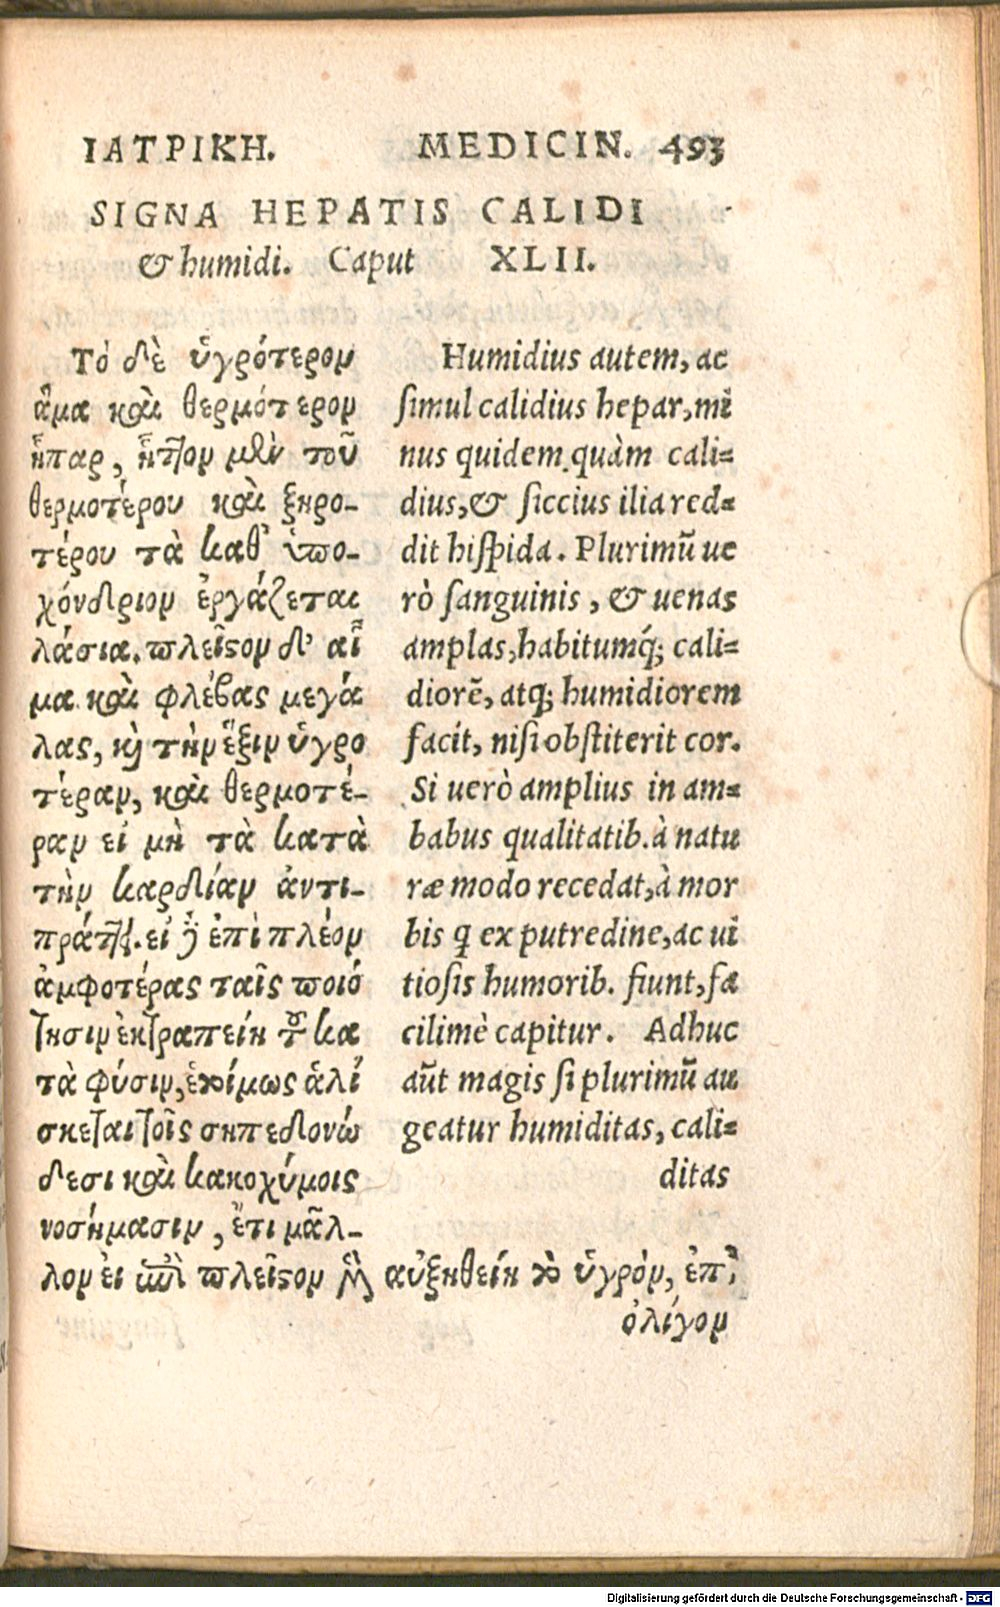 ΙΑΤΡΙΚΗ. MEDICIN. 493
SIGNA HEPATIS CALIDI
& humidi. Caput XLII.
Τὸ δὲ ὑγρότερον
ἅμα καὶ θερμότερον
ἧπαρ, ἧττον μὲν τοῦ
θερμοτέρου καὶ ξηρο-
τέρου τὰ καθ' ὑπο-
χόνδριον ἐργάζεται
λάσια. πλεῖστον δ' αἷ
μα καὶ φλέβας μεγά
λας, καὶ τὴν ἕξιν ὑγρο
τέραν, καὶ θερμοτέ-
ραν εἰ μὴ τὰ κατὰ
τὴν καρδίαν ἀντι-
πράττει. εἰ δὲ ἐπὶ πλέον
ἀμφοτέρας ταῖς ποιό
τησιν ἐκτραπείη τοῦ κα
τὰ φύσιν, ἑτοίμως ἁλί
σκεται τοῖς σηπεδονώ
δεσι καὶ κακοχύμοις
νοσήμασιν, ἔτι μᾶλ-
λον εἰ ἐπὶ πλεῖστον μὲν αὐξηθείη τὸ ὑγρὸν, ἐπ'
ὀλίγον
Humidius autem, ac
simul calidius hepar, mi
nus quidem quàm cali=
dius, & siccius ilia red=
dit hispida. Plurimũ ue
rò sanguinis, & uenas
amplas, habitumq́; cali=
diorẽ, atq; humidiorem
facit, nisi obstiterit cor.
Si uerò amplius in am=
babus qualitatib. à natu
ræ modo recedat, à mor
bis q ex putredine, ac ui
tiosis humorib. fiunt, fa
cilimè capitur. Adhuc
aũt magis si plurimũ au
geatur humiditas, cali=
ditas
Digitalisierung gefördert durch die Deutsche Forschungsgemeinschaft - DFG